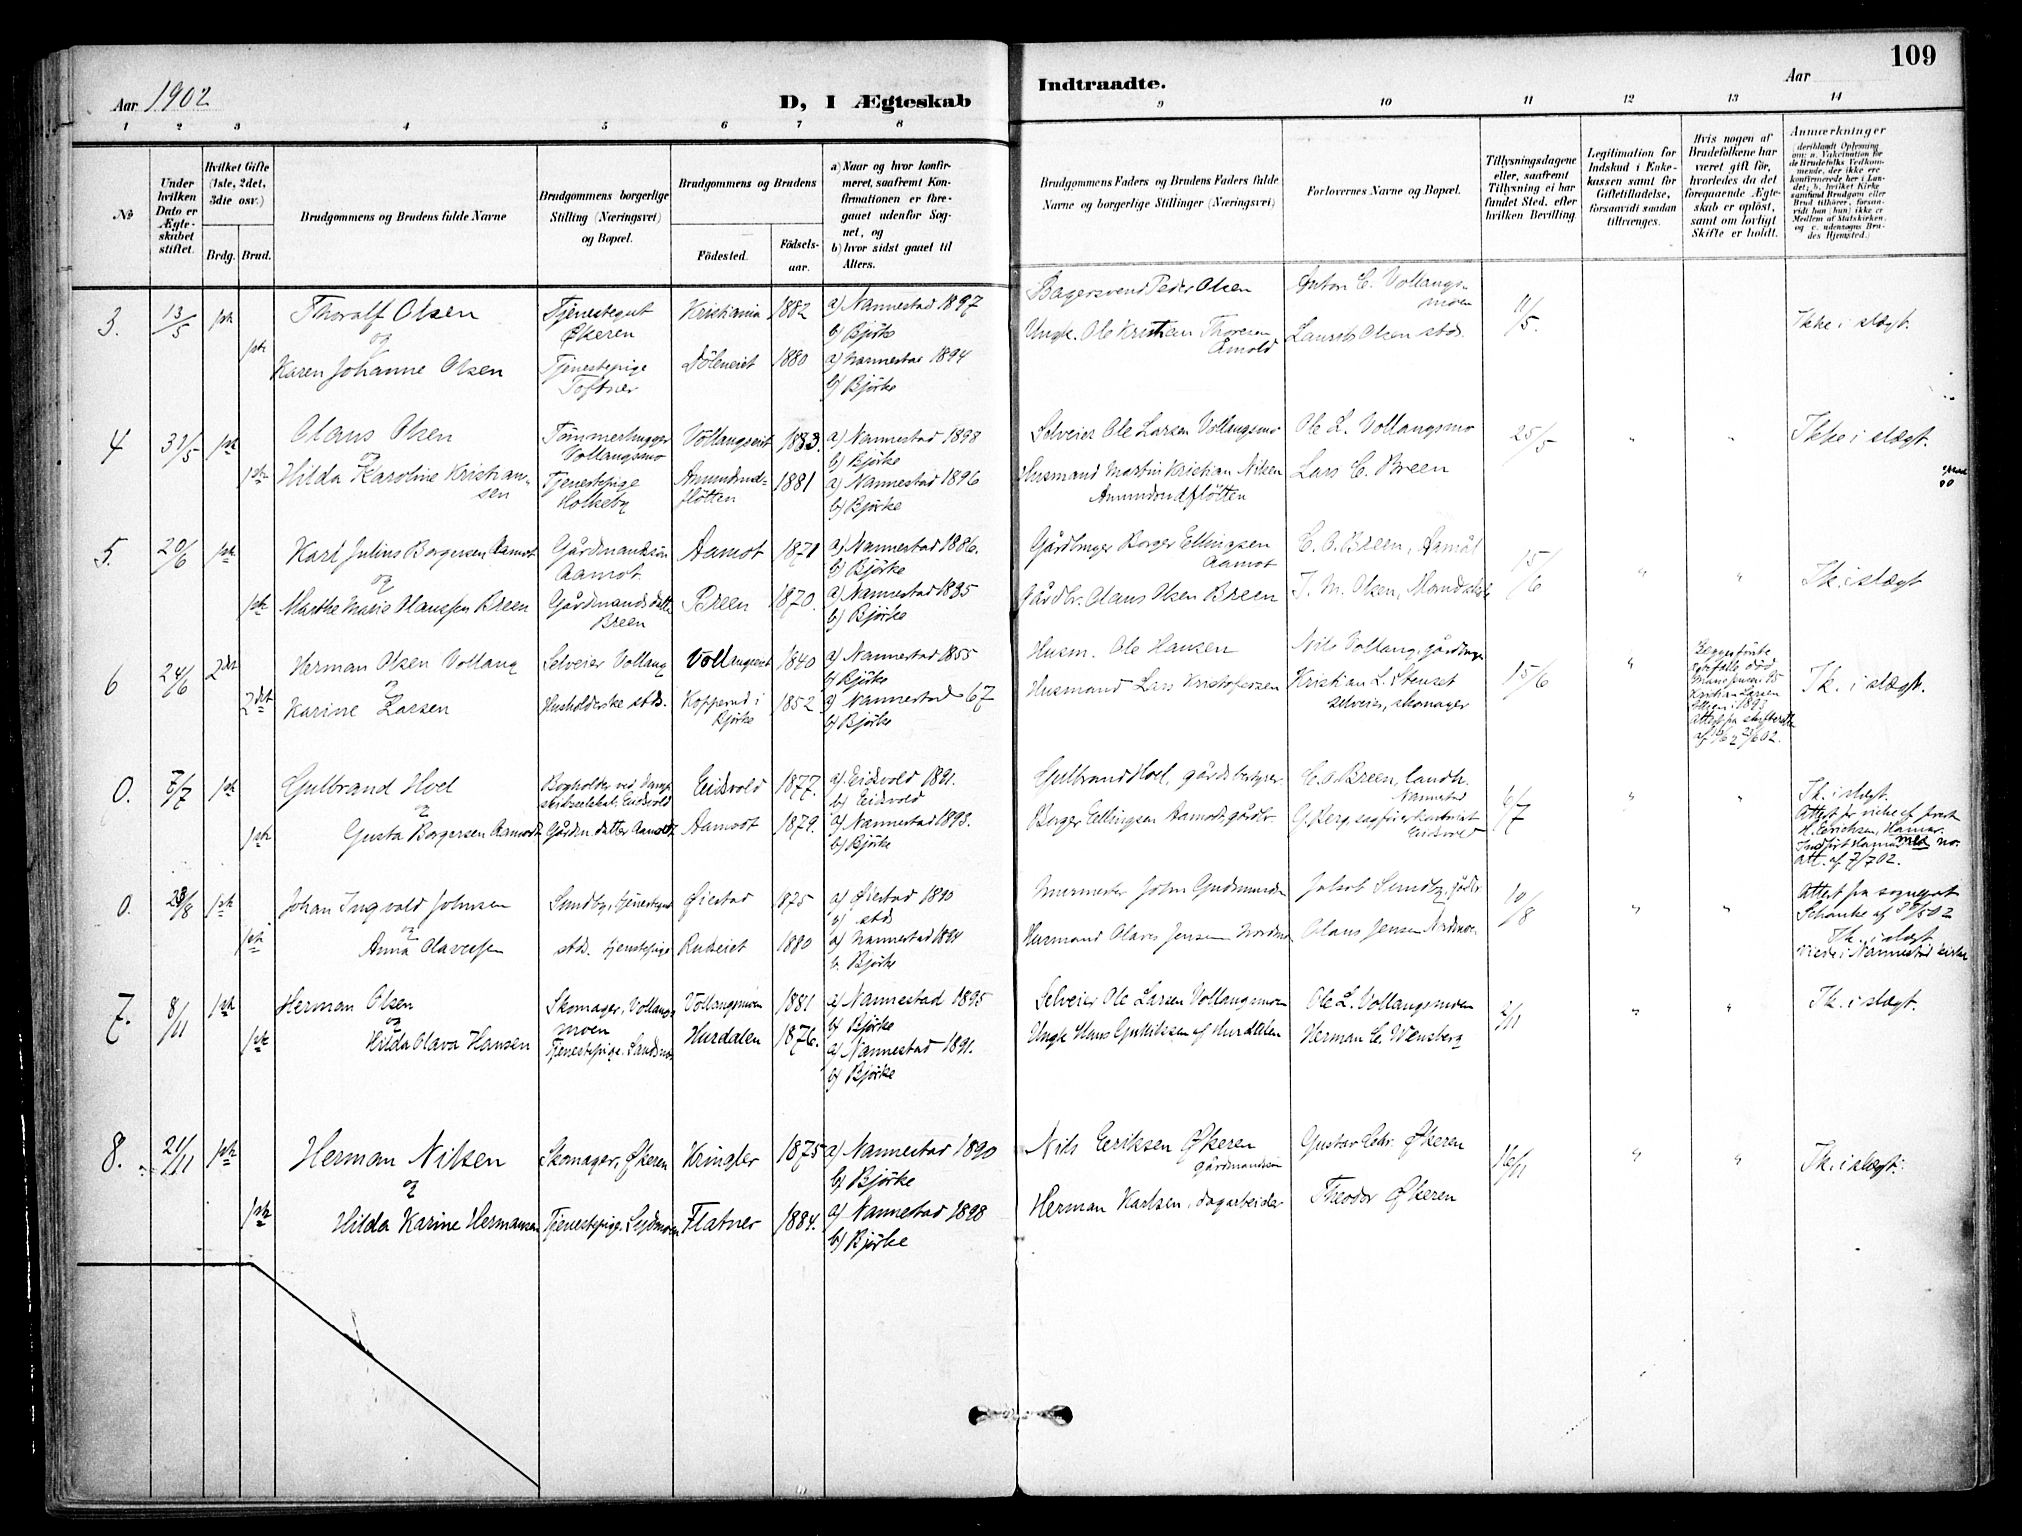 109
Aar 1902
D, I Ægteskab
Indtraadte.
Aar
1 2 3 4 5 6 7 8 9 10 11 12 13 14
No
Under hvilken Dato er Ægteskabet stiftet.
Hvilket Gifte (1ste, 2det, 3dte osv.)
Brdg. Brud.
Brudgommens og Brudens fulde Navne
Brudgommens borgerlige Stilling (Næringsvei) og Bopæl.
Brudgommens og Brudens
Födested.
Födselsaar.
a) Naar og hvor konfirmeret, saafremt Konfirmationen er foregaaet udenfor Sognet, og
b) hvor sidst gaaet til Alters.
Brudgommens Faders og Brudens Faders fulde Navne og borgerlige Stillinger (Næringsvei)
Forlovernes Navne og Bopæl.
Tillysningsdagene eller, saafremt Tillysning ei har fundet Sted, efter hvilken Bevilling.
Legitimation for Indskud i Enkekassen samt for Giftetilladelse, forsaavidt saadan tiltrænges.
Hvis nogen af Brudefolkene har været gift för, hvorledes da det foregaaende Ægteskab er oplöst, samt om lovligt Skifte er holdt.
Anmærkninger
3. 13/5 1ste Thoralf Olsen Tjenestegut Økeren Kristiania 1882 a) Nannestad 1897 b) Bjørke Bagersvend Peder Olsen Anton C. Vollangsmoen 11/5. Ikke i slægt.
og
1ste Karen Johanne Olsen Tjenestepige Toftner Döleneiet 1880 a) Nannestad 1894 b) Bjørke Ungk. Ole Kristian Thoresen Laurits Olsen stds.
4 31/5 1ste Olaus Olsen Tømmerhugger Vollangsmo Vollangseiet 1883. a) Nannestad 1898 b) Bjørke Selveier Ole Larsen Vollangsmo Ole L. Vollangsmo 25/5 " " Ikke i slægt.
og
1ste Hilda Karoline Kristiansen Tjenestepige Holkeby Amundrudfløtten 1881 a) Nannestad 1896 b) Bjørke Husmand Martin Kristian Nilsen Amundrudfløtten Lars C. Breen
5. 20/6 1ste Karl Julius Borgersen Aamot Gårdmandssøn Aamot Aamot 1871 a) Nannestad 1886. b) Bjørke Gårdbruger Borger Ellingsen Aamot C. O. Breen, 15/6 " " Ik. i slægt
og
1ste Marthe Marie Olausen Breen Gårdmandsdatter Breen Breen 1870. a) Nannestad 1885 b) Bjørke Gårdbr. Olaus Olsen Breen J. M. Olsen,
6 24/6 2det Herman Olsen Vollang Selveier Vollang Vollangseiet 1840 a) Nannestad 1855 b) Bjørke Husm. Ole Hansen Nils Vollang, gårdbruger 15/6 " Ik. i slægt.
og
2det Karine Larsen Husholderske stds. Kopperud i Bjørke 1852 a) Nannestad 67 b) Bjørke Husmand Lars Kristofersen Kristian L. Stenset selveier, skomager
0. 7/7 1ste Gulbrand Hoel Eidsvold 1877. a) Eidsvold 1891. b) Eidsvold Gulbrand Hoel, gårdsbestyrer C. O. Breen, landh. Nannestad 6/7 " " Ik. i slægt.
og
1ste Gusta Borgersen Aamodt Gårdm. datter Aamodt Aamodt 1879. a) Nannestad 1893. b) Bjørke Borger Ellingsen Aamodt, gårdbr. Eidsvold
0. 28/8 1ste Johan Ingvald Johnsen Sundby, tjenestegut Øiestad 1875 a) Øiestad 1890 b) stds Murmester John Gudmundsen Jakob Sundby, gårdbr. 10/8 " " Ik. i slægt.
og
1ste Anna Olavesen stds. tjenestepige Rudeiet 1880 a) Nannestad 1894 b. Bjørke Husmand Olaves Jensen Nordmo Olaus Jensen Nordmo. viede i Nannestad kirke
7. 8/11 1ste Herman Olsen Skomager, Vollangsmoen Vollangsmoen 1881 a) Nannestad 1895 b) Bjørke Selveier Ole Larsen Vollangsmoen Ole L. Vollangsmoen 2/11 " " Ik. i slægt.
og
1ste Hilda Olava Hansen Tjenestepige, Sandsnes Hurdalen 1876. a) Nannestad 1891. b) Bjørke Ungk. Hans Gulliksen af Hurdalen Herman C. Wensberg
8. 21/11 1ste Herman Nilsen Skomager, Økeren Kringler 1875 a) Nannestad 1890 b) Bjørke Nils Eriksen Økeren gårdmandssøn Gustav Edv. Økeren 16/11 " " Ik. i slægt.
og
1ste Hilda Karine Hermansen Tjenestepige, Flatner 1884. a) Nannestad 1898 b) Bjørke Herman Karlsen, dagarbeider Theodor Økeren